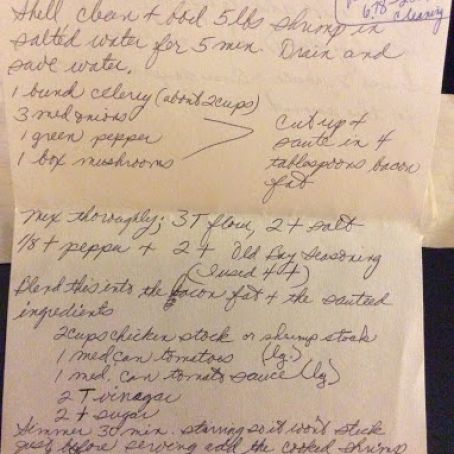 Shell clean + boil 5 lbs shrimp in
salted water for 5 min. Drain and
save water.
1 bund celery (about 2 cups)
3 med onions
1 green pepper
1 box mushrooms
cut up +
saute in 4
tablespoons bacon
fat
mix thoroughly; 3 T flour, 2 t salt
1/8 t pepper + 2 t Old Bay Seasoning
(I used 4 t)
Blend this into the bacon fat + the sauteed
ingredients
2 cups chicken stock or shrimp stock
1 med can tomatoes (lg.)
1 med. can tomato sauce (lg)
2 T vinegar
2 t sugar
Simmer 30 min. stirring so it won't stick
just before serving add the cooked shrimp
cleaning